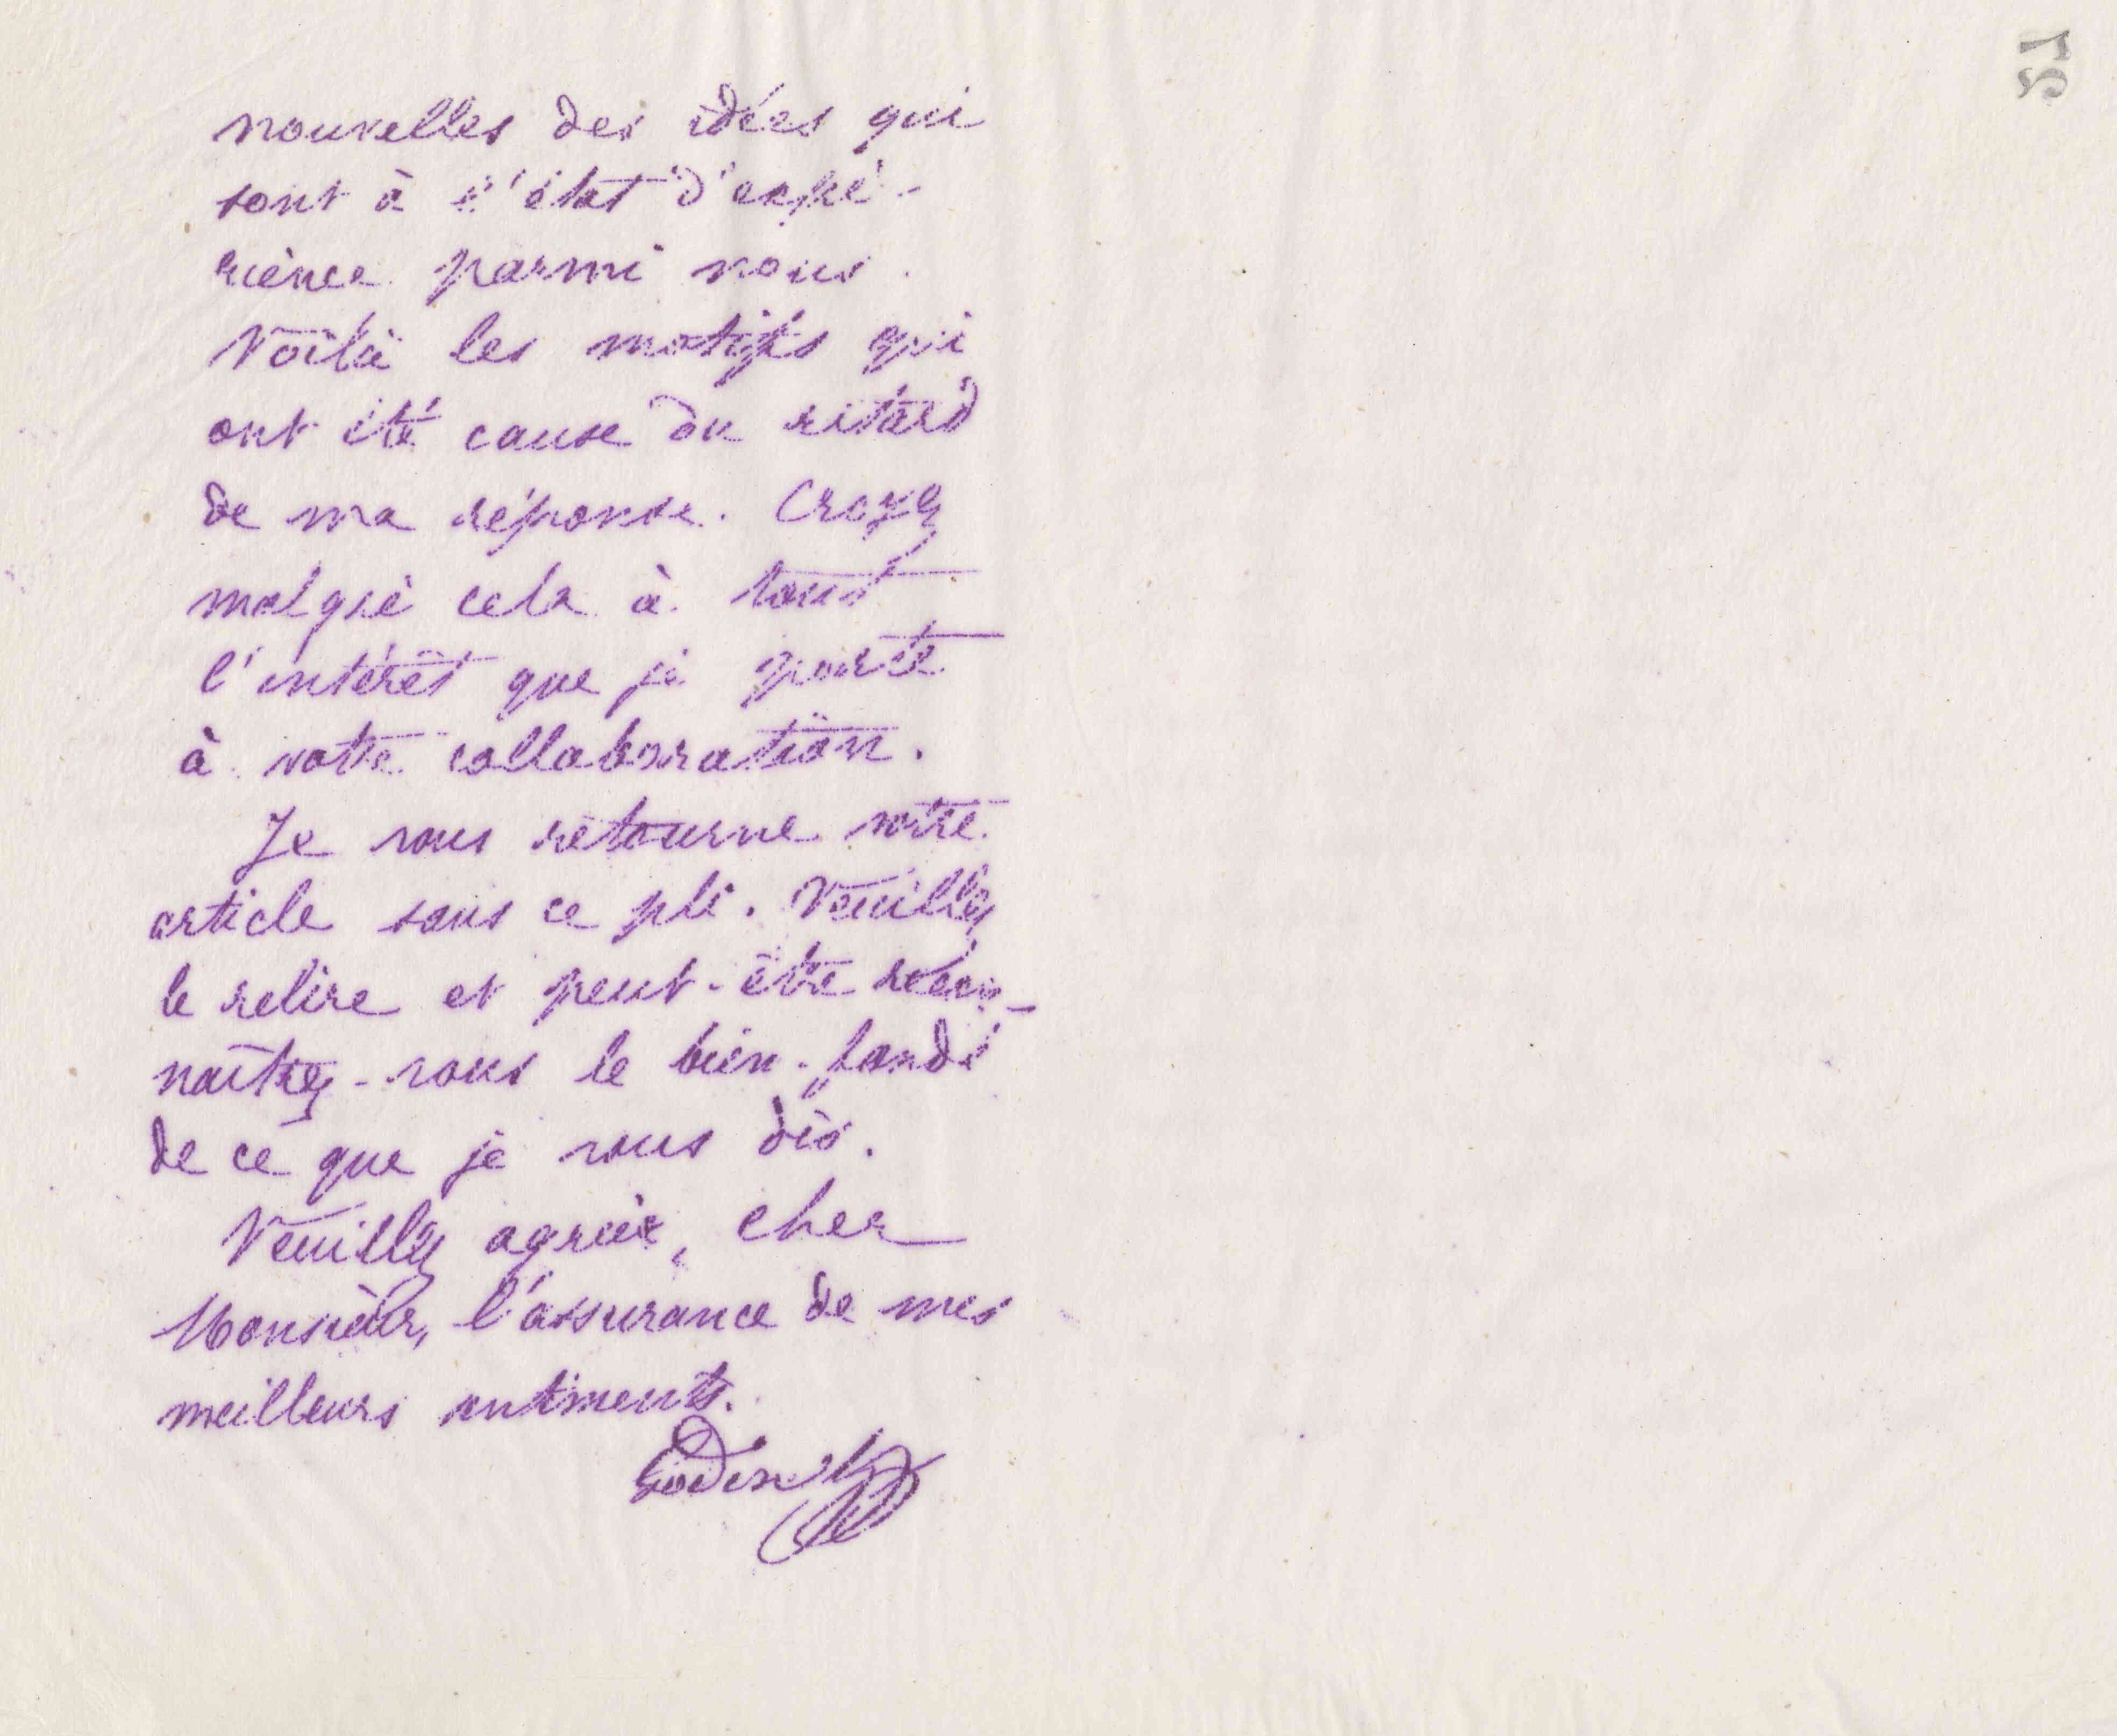 51
nouvelles des idées qui
sont à l'état d'expé-
rience parmi nous.
Voilà les motifs qui
ont été cause du retard
de ma réponse. Croyez
malgré cela à tout
l'intérêt que je porte
à votre collaboration.
Je vous retourne votre
article sous ce pli. Veuillez
le relire et peut-être recon-
naîtrez-vous le bien-fondé
de ce que je vous dis.
Veuillez agréer, cher
Monsieur, l'assurance de mes
meilleurs sentiments.
Godin